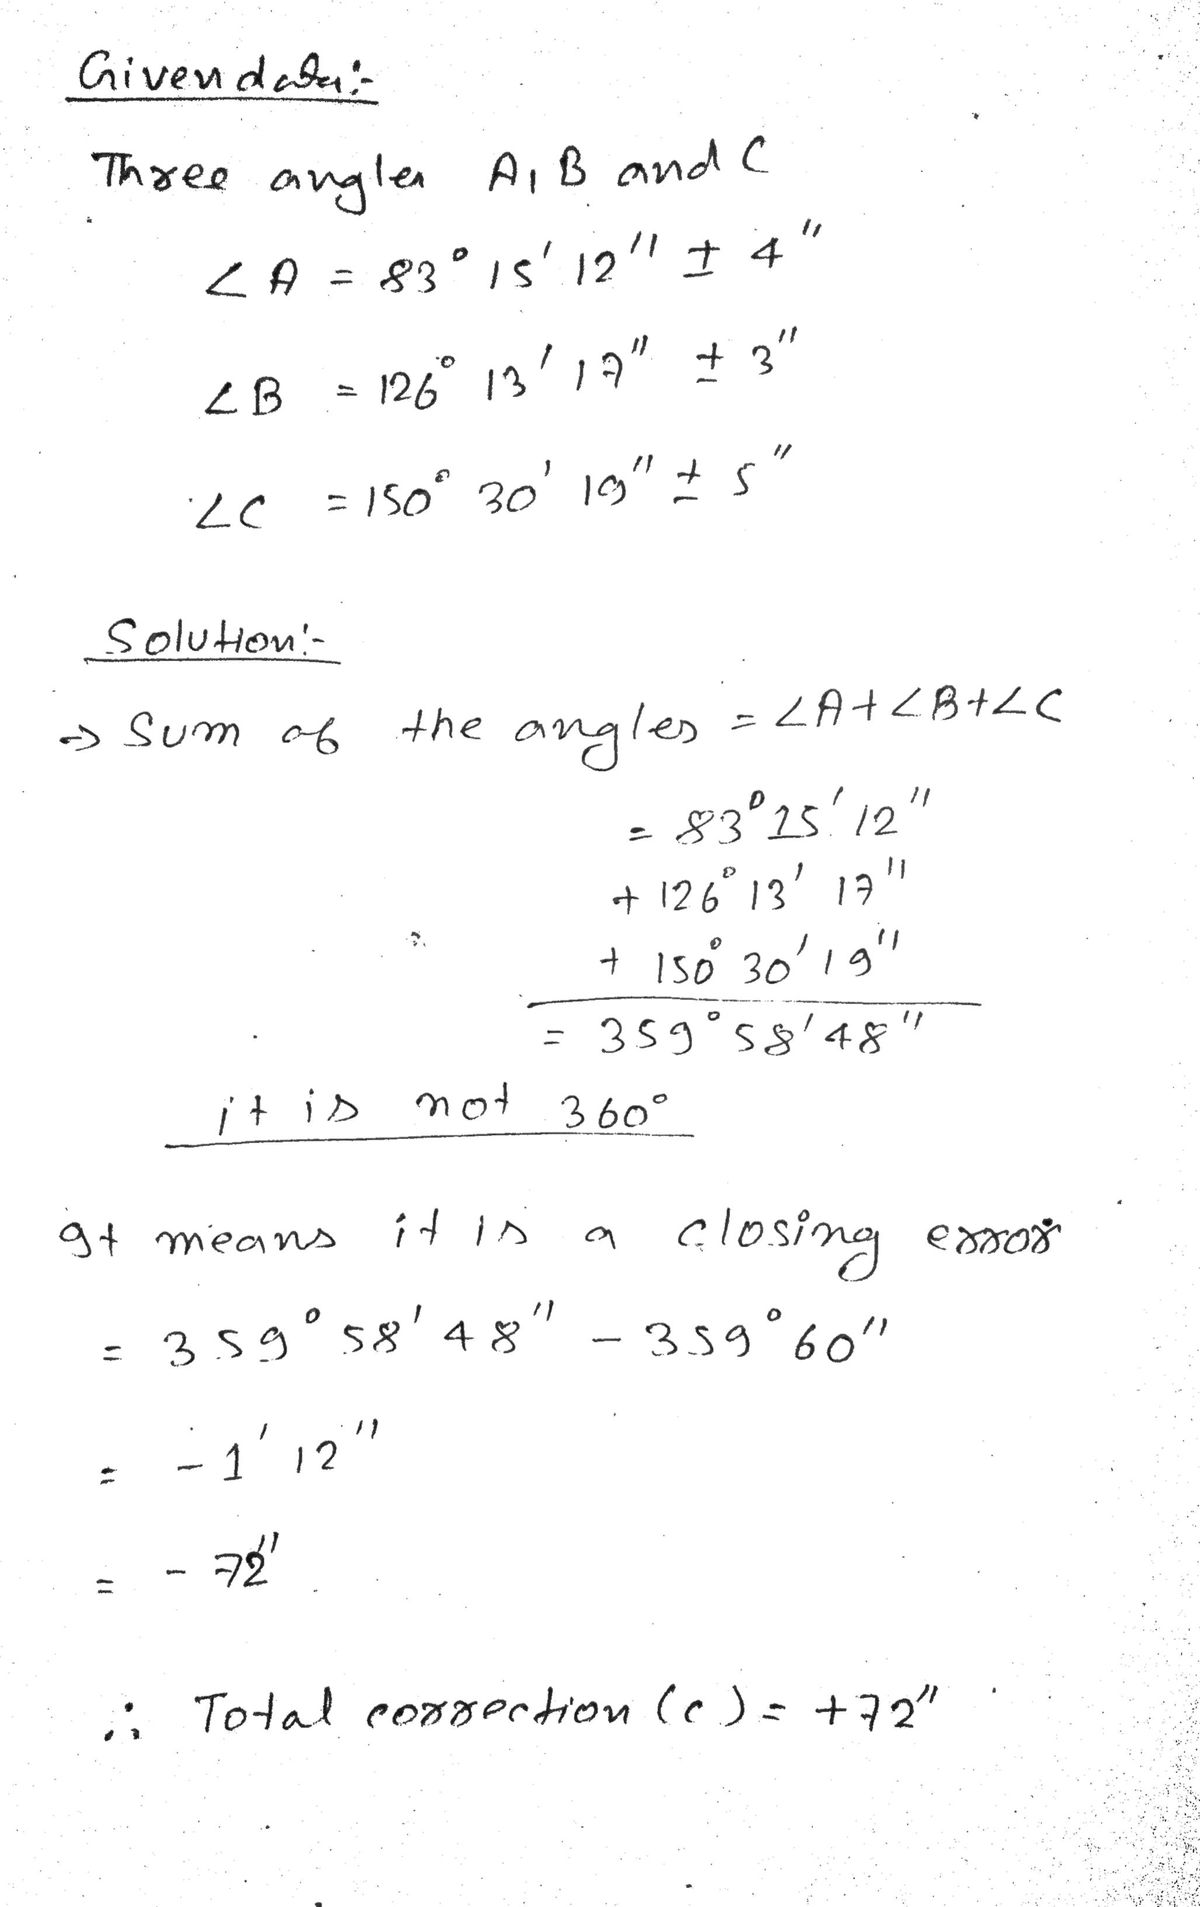 Given data:-
Three angles A, B and C
∠A = 83° 15' 12" ± 4"
∠B = 126° 13' 17" ± 3"
∠C = 150° 30' 19" ± 5"
Solution:-
→ Sum of the angles = ∠A+∠B+∠C
= 83° 15' 12"
+ 126° 13' 17"
+ 150° 30' 19"
= 359° 58' 48"
it is not 360°
It means it is a closing error
= 359° 58' 48" - 359° 60"
= -1' 12"
= -72"
∴ Total correction (c) = +72"